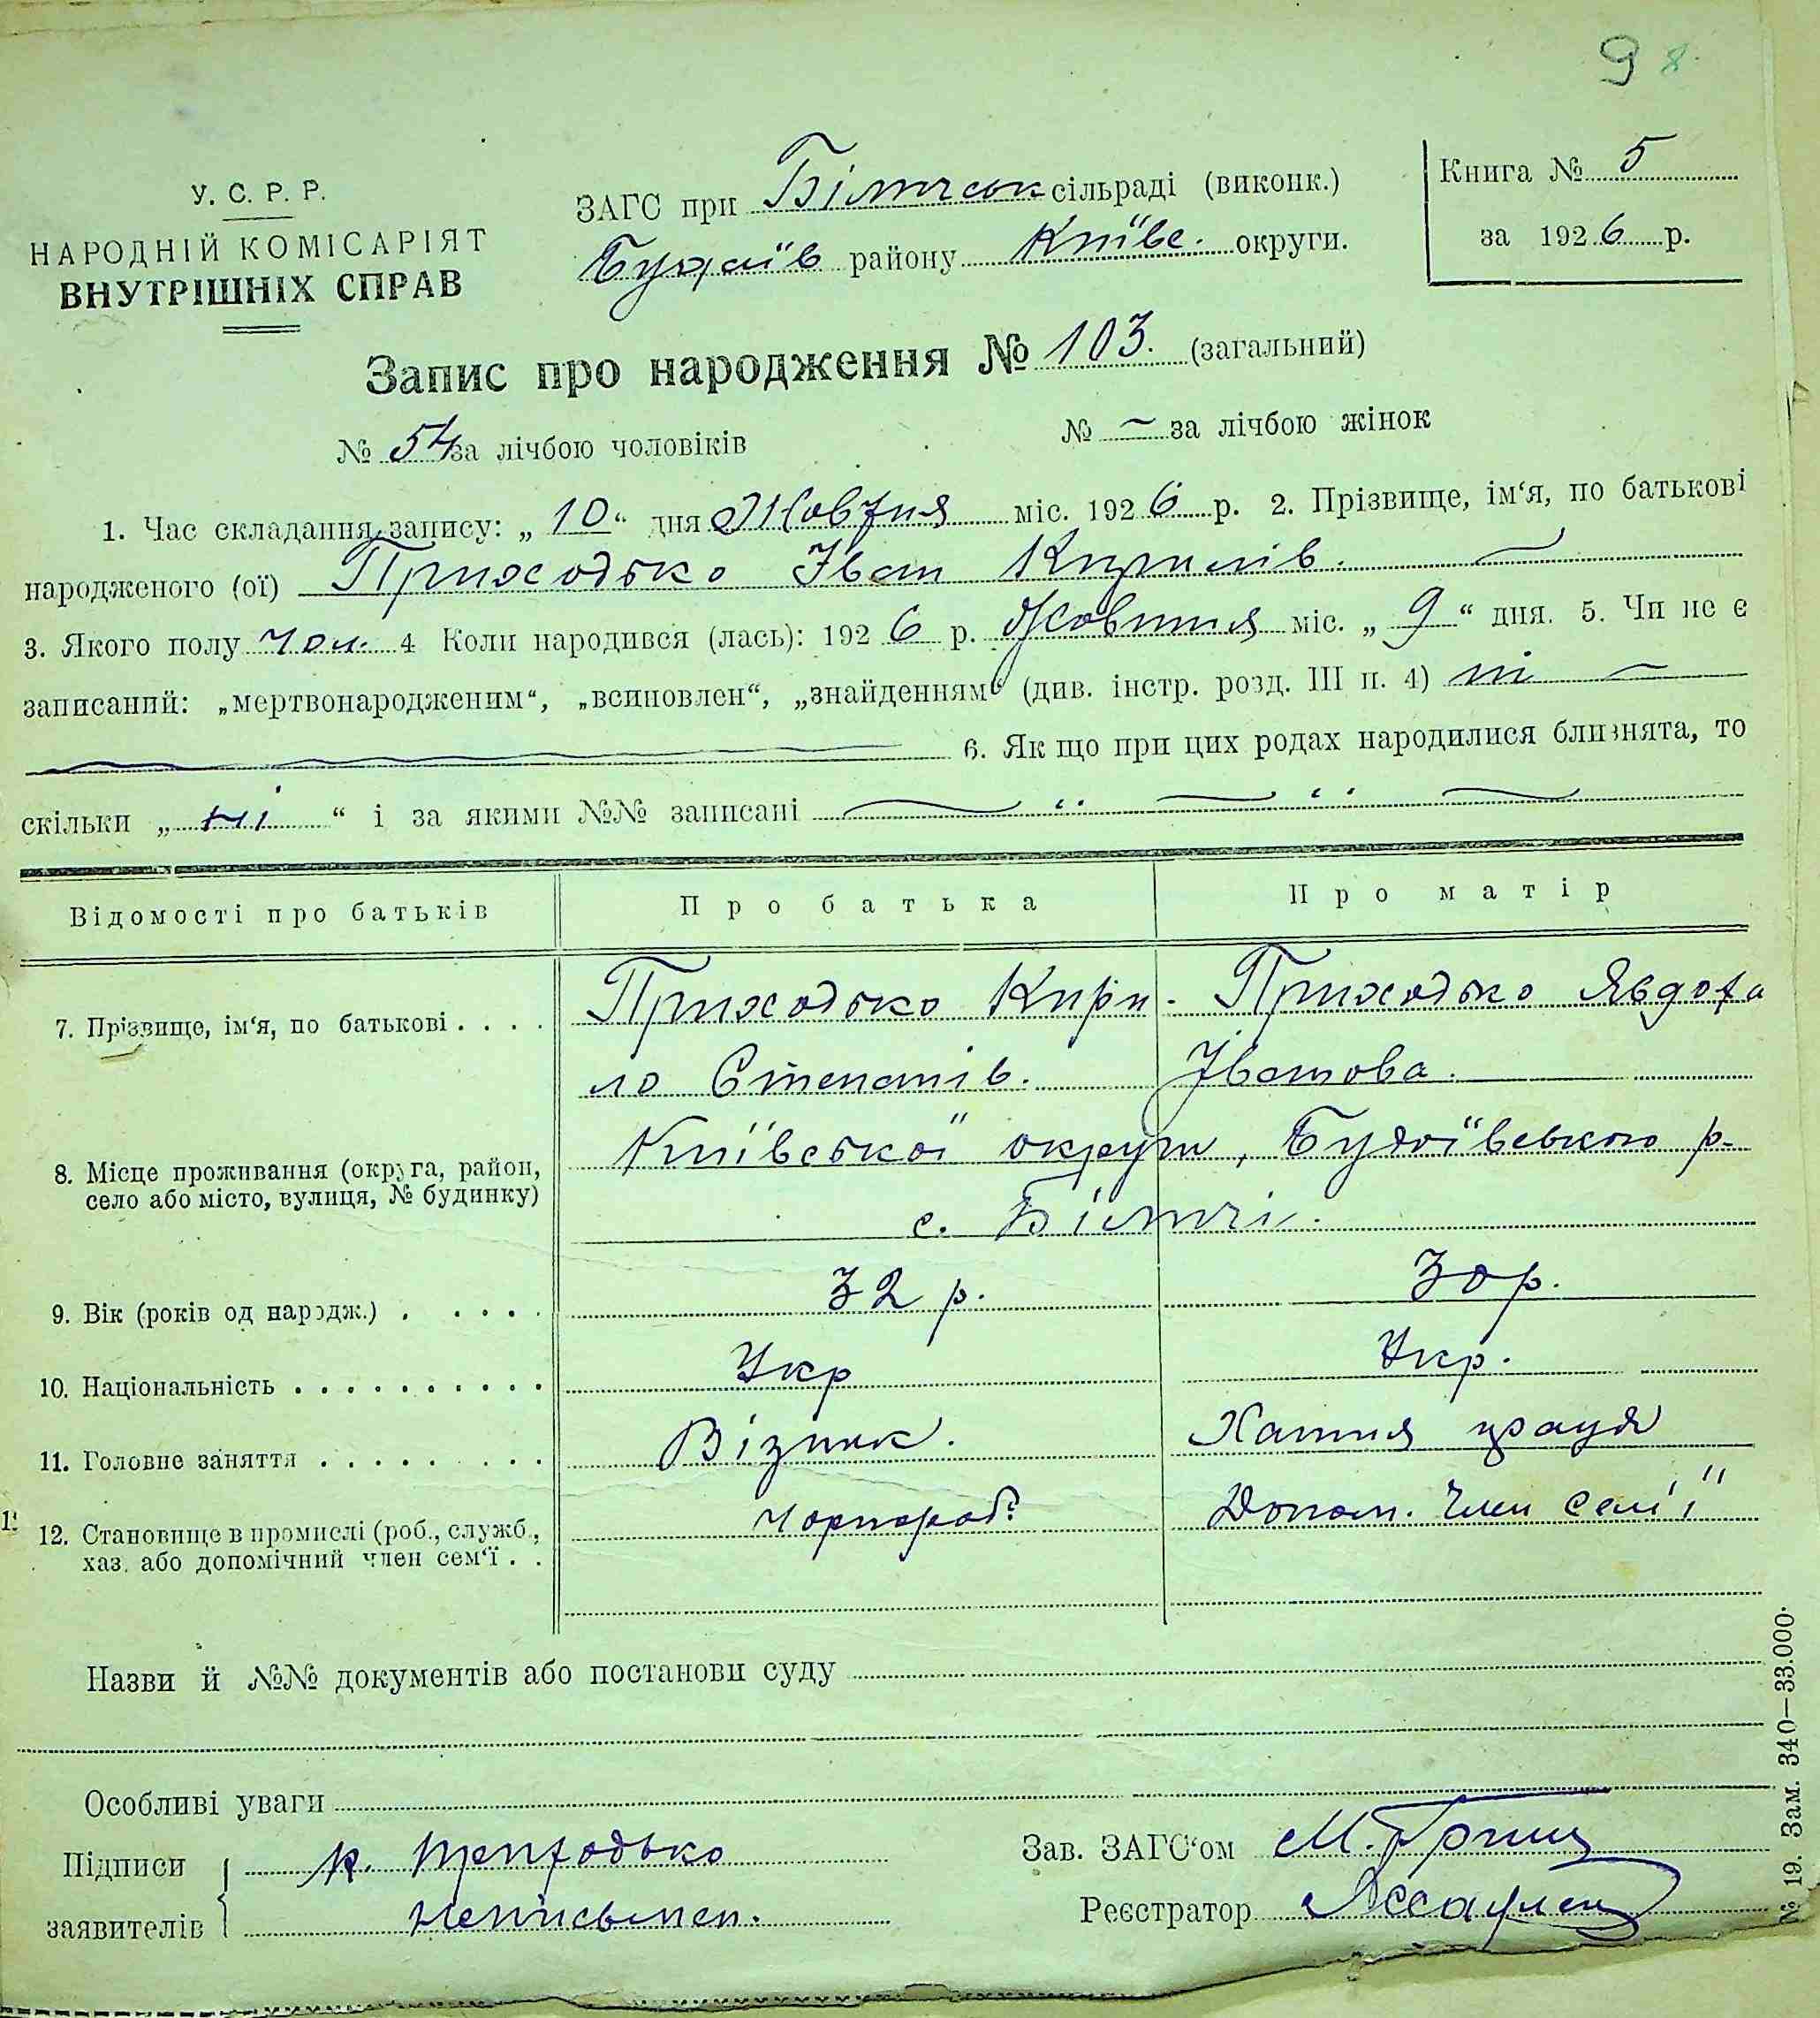 9 8.
У. С. Р. Р.
НАРОДНІЙ КОМІСАРІЯТ
ВНУТРІШНІХ СПРАВ
ЗАГС при сільраді (виконк.)
Будаїв району Київс. округи.
Книга № 5
за 1926 р.
Запис про народження № 103. (загальний)
№ 54 за лічбою чоловіків № ~ за лічбою жінок
1. Час складання запису: „10“ дня Жовтня міс. 1926 р. 2. Прізвище, ім‘я, по батькові
народженого (ої) Приходько Іван Кирилів.
3. Якого полу чол. 4 Коли народився (лась): 1926 р. Жовтня міс. „9“ дня. 5. Чи не є
записаний: „мертвонародженим“, „всиновлен“, „знайденням“ (див. інстр. розд. III п. 4) ні
6. Як що при цих родах народилися близнята, то
скільки „ні“ і за якими №№ записані
Відомості про батьків Про батька Про матір
7. Прізвище, ім‘я, по батькові . . . . Приходько Кири- Приходько Явдоха
ло Степанів. Іванова.
8. Місце проживання (округа, район, Київської округи, Будаївського р.
село або місто, вулиця, № будинку) с. Біличі.
9. Вік (років од народж.) . . . . . 32 р. 30 р.
10. Національність . . . . . . . . . . . Укр Укр.
11. Головне заняття . . . . . . . . . Візник. Хатня праця
12. Становище в промислі (роб., служб., Чорнороб. Допом. Член сем'ї
хаз. або допомічний член сем‘ї . .
Назви й №№ документів або постанови суду
Особливі уваги
Підписи К. Приходько
заявителів неписьмен.
Зав. ЗАГС‘ом М.
Реєстратор
№ 19. Зам. 340—33.000.